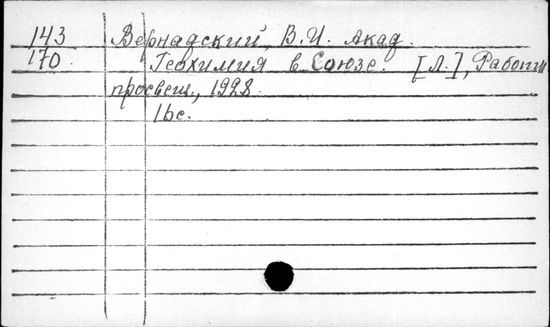 143 Вернадский, В.И. Акад.
170. Геохимия в Союзе. [Л.], Работн
просвещ., 1928.
16с.